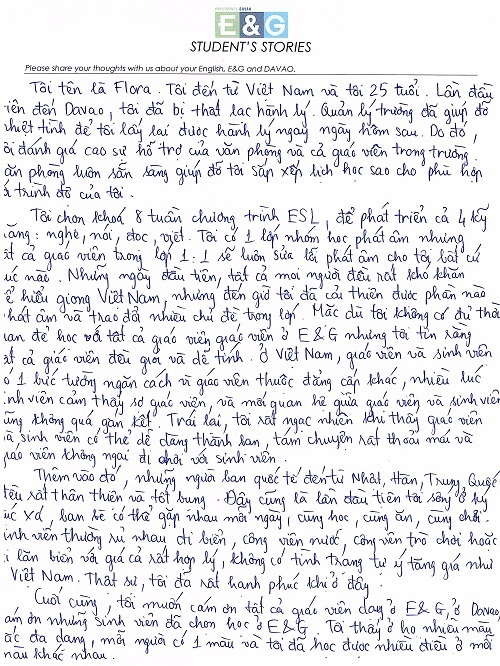 PHILIPPINES DAVAO
E&G
STUDENT'S STORIES
Please share your thoughts with us about your English, E&G and DAVAO.
Tôi tên là Flora. Tôi đến từ Việt Nam và tôi 25 tuổi. Lần đầu
iên đến Davao, tôi đã bị thất lạc hành lý. Quản lý trường đã giúp đỡ
nhiệt tình để tôi lấy lại được hành lý ngay ngày hôm sau. Do đó,
ôi đánh giá cao sự hỗ trợ của văn phòng và cả giáo viên trong trường.
ăn phòng luôn sẵn sàng giúp đỡ tôi sắp xếp lịch học sao cho phù hợp
trình độ của tôi.
Tôi chọn khoá 8 tuần chương trình ESL, để phát triển cả 4 kỹ
ăng: nghe, nói, đọc, viết. Tôi có 1 lớp nhóm học phát âm nhưng
ất cả giáo viên trong lớp 1:1 sẽ luôn sửa lỗi phát âm cho tôi bất cứ
úc nào. Những ngày đầu tiên, tất cả mọi người đều rất khó khăn
ể hiểu giọng Việt Nam, nhưng đến giờ tôi đã cải thiện được phần nào
hát âm và trao đổi nhiều chủ đề trong lớp. Mặc dù tôi không có đủ thời
ian để học với tất cả giáo viên giáo viên ở E&G nhưng tôi tin rằng
ất cả giáo viên đều giỏi và dễ tính. Ở Việt Nam, giáo viên và sinh viên
ó 1 bức tường ngăn cách vì giáo viên thuộc đẳng cấp khác, nhiều lúc
inh viên cảm thấy sợ giáo viên, và mối quan hệ giữa giáo viên và sinh viên
ũng không quá gắn kết. Trái lại, tôi rất ngạc nhiên khi thấy giáo viên
à sinh viên có thể dễ dàng thành bạn, tám chuyện rất thoải mái và
giáo viên không ngại đi chơi với sinh viên.
Thêm vào đó, những người bạn quốc tế đến từ Nhật, Hàn, Trung Quốc
đều rất thân thiện và tốt bụng. Đây cũng là lần đầu tiên tôi sống ở ký
úc xá, bạn sẽ có thể gặp nhau mỗi ngày, cùng học, cùng ăn, cùng chơi.
inh viên thường rủ nhau đi biển, công viên nước, công viên trò chơi hoặc
i lặn biển với giá cả rất hợp lý, không có tình trạng tự ý tăng giá như
Việt Nam. Thật sự, tôi đã rất hạnh phúc khi ở đây.
Cuối cùng, tôi muốn cám ơn tất cả giáo viên dạy ở E&G, ở Davao
ám ơn những sinh viên đã chọn học ở E&G. Tôi thấy ở họ nhiều màu
ắc đa dạng, mỗi người có 1 màu và tôi đã học được nhiều điều ở mỗi
màu khác nhau.